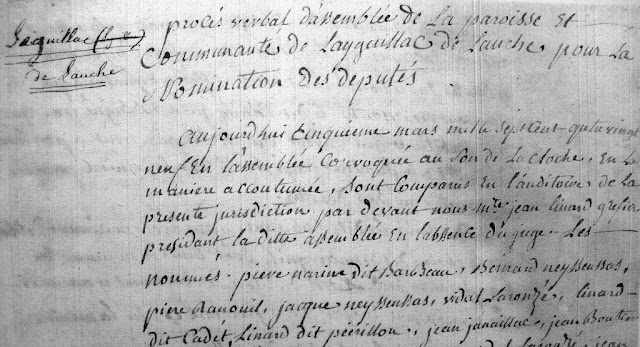 Laguillac
de Lauche
procés verbal d'assemblée de La paroisse Et
Communauté de Laygeullac de Lauche, pour La
Nomination Des députés.
Aujourd'hui Cinquieme mars mille sept cent quatrevingt
neuf En l'assemblée Convoquée au Son de La Cloche, En La
maniere accoutumée, Sont Comparus En l'auditoire de La
presente jurisdiction par devant nous mtre jean Linard grefier
presidant la ditte assemblée En labsence du juge. Les
nommés. piere narine dit Barbeau, Bernard neyssensas,
piere Ranouil, jacque neyssensas, vidal Laronzé, Linard
dit Cadet, Linard dit peérillou, jean janaillac, jean
jean